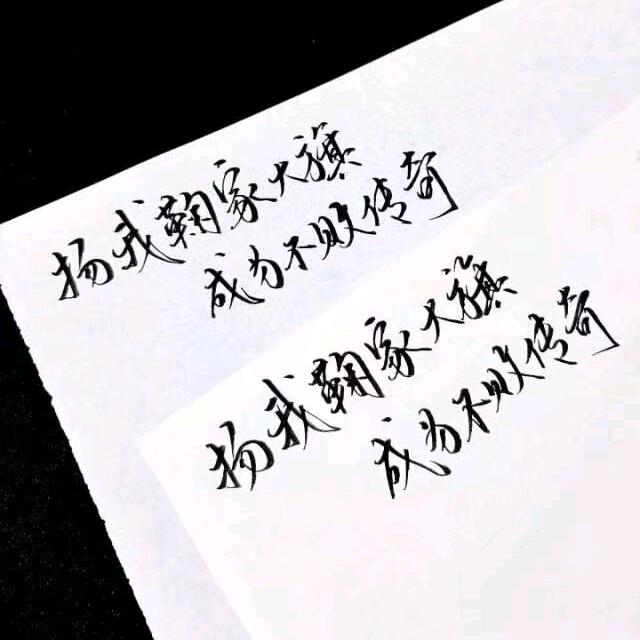 扬我鞠家大旗
成为不败传奇
扬我鞠家大旗
成为不败传奇